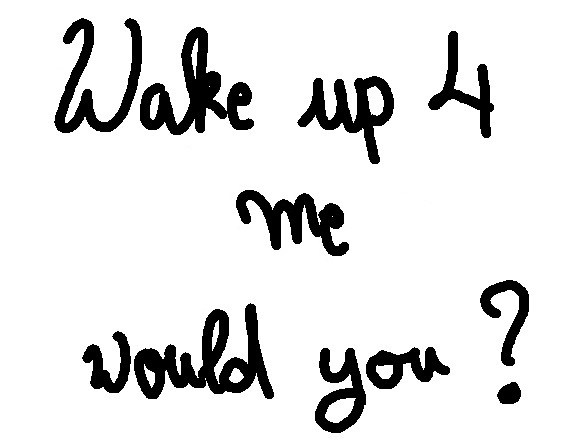 Wake up 4
me
would you?